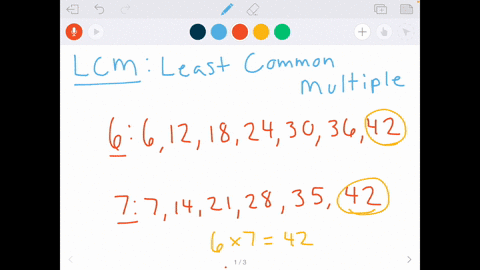 LCM: Least Common
Multiple
6: 6, 12, 18, 24, 30, 36, 42
7: 7, 14, 21, 28, 35, 42
6 × 7 = 42
1 / 3